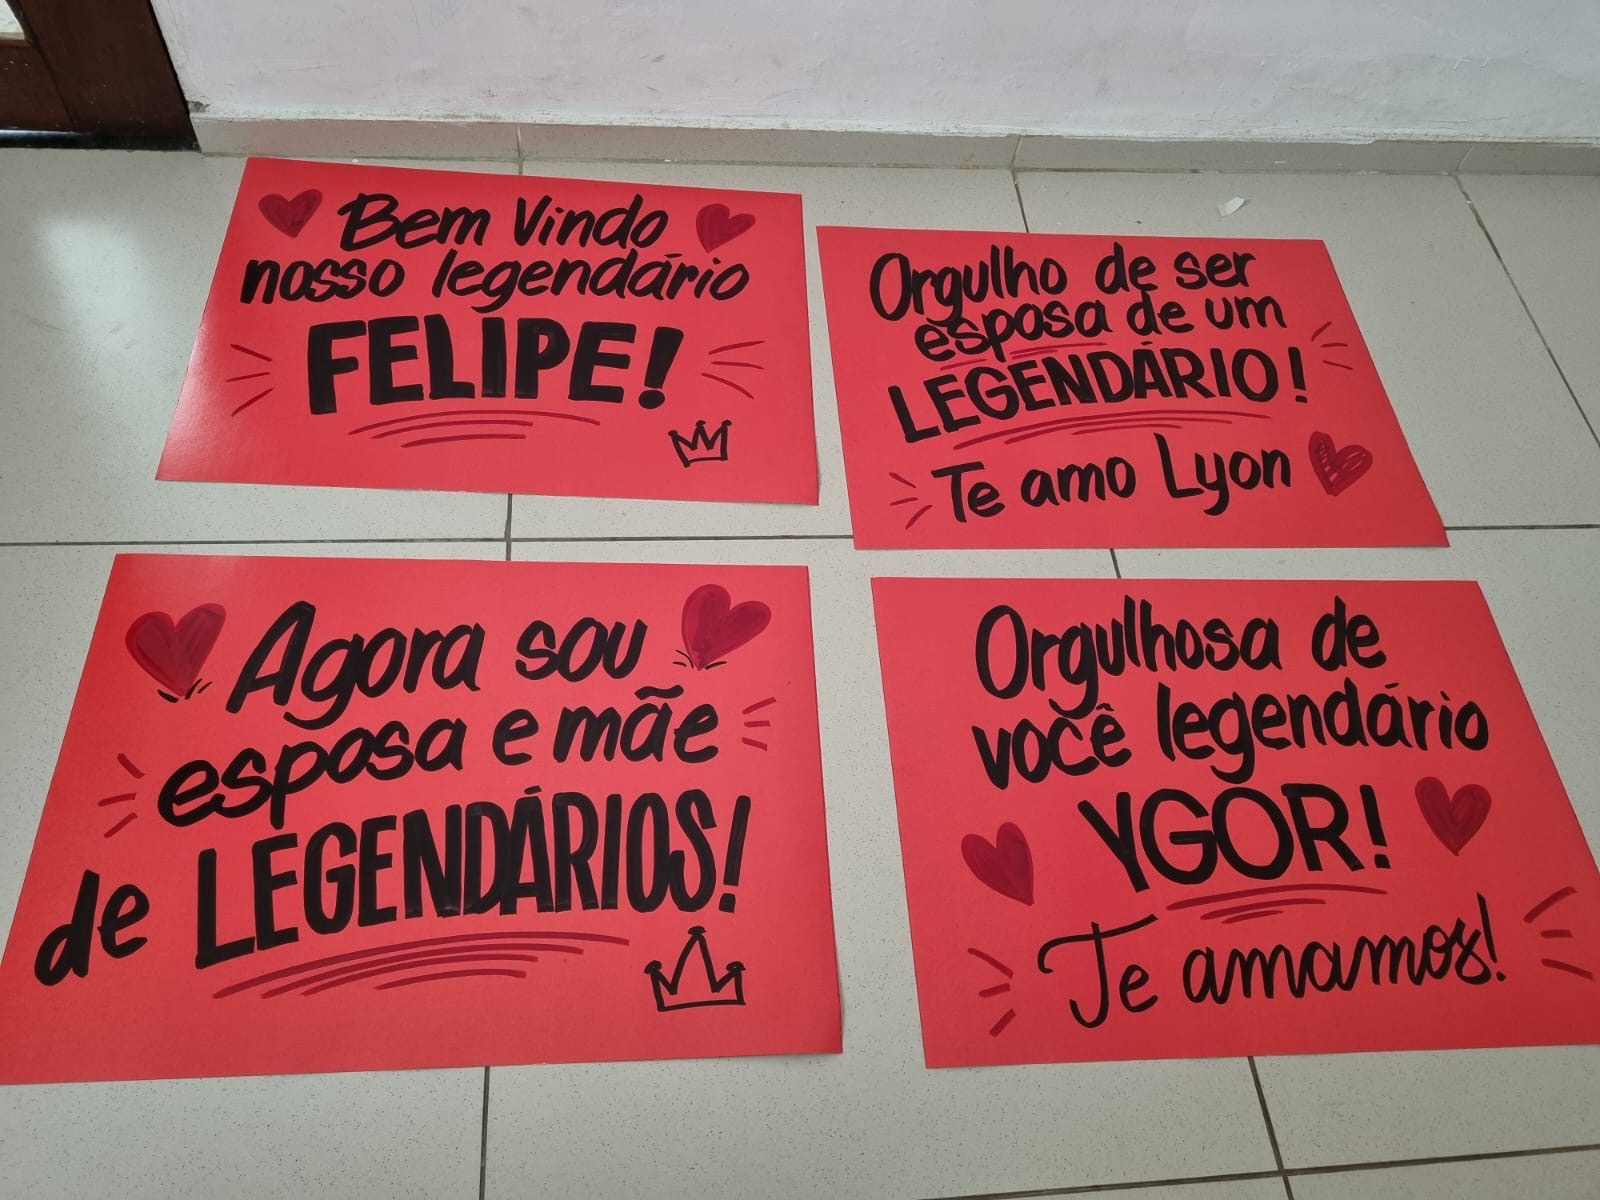 Bem Vindo
nosso legendário
FELIPE!
Orgulho de ser
esposa de um
LEGENDÁRIO!
Te amo Lyon
Agora sou
esposa e mãe
de LEGENDÁRIOS!
Orgulhosa de
você legendário
YGOR!
Te amamos!